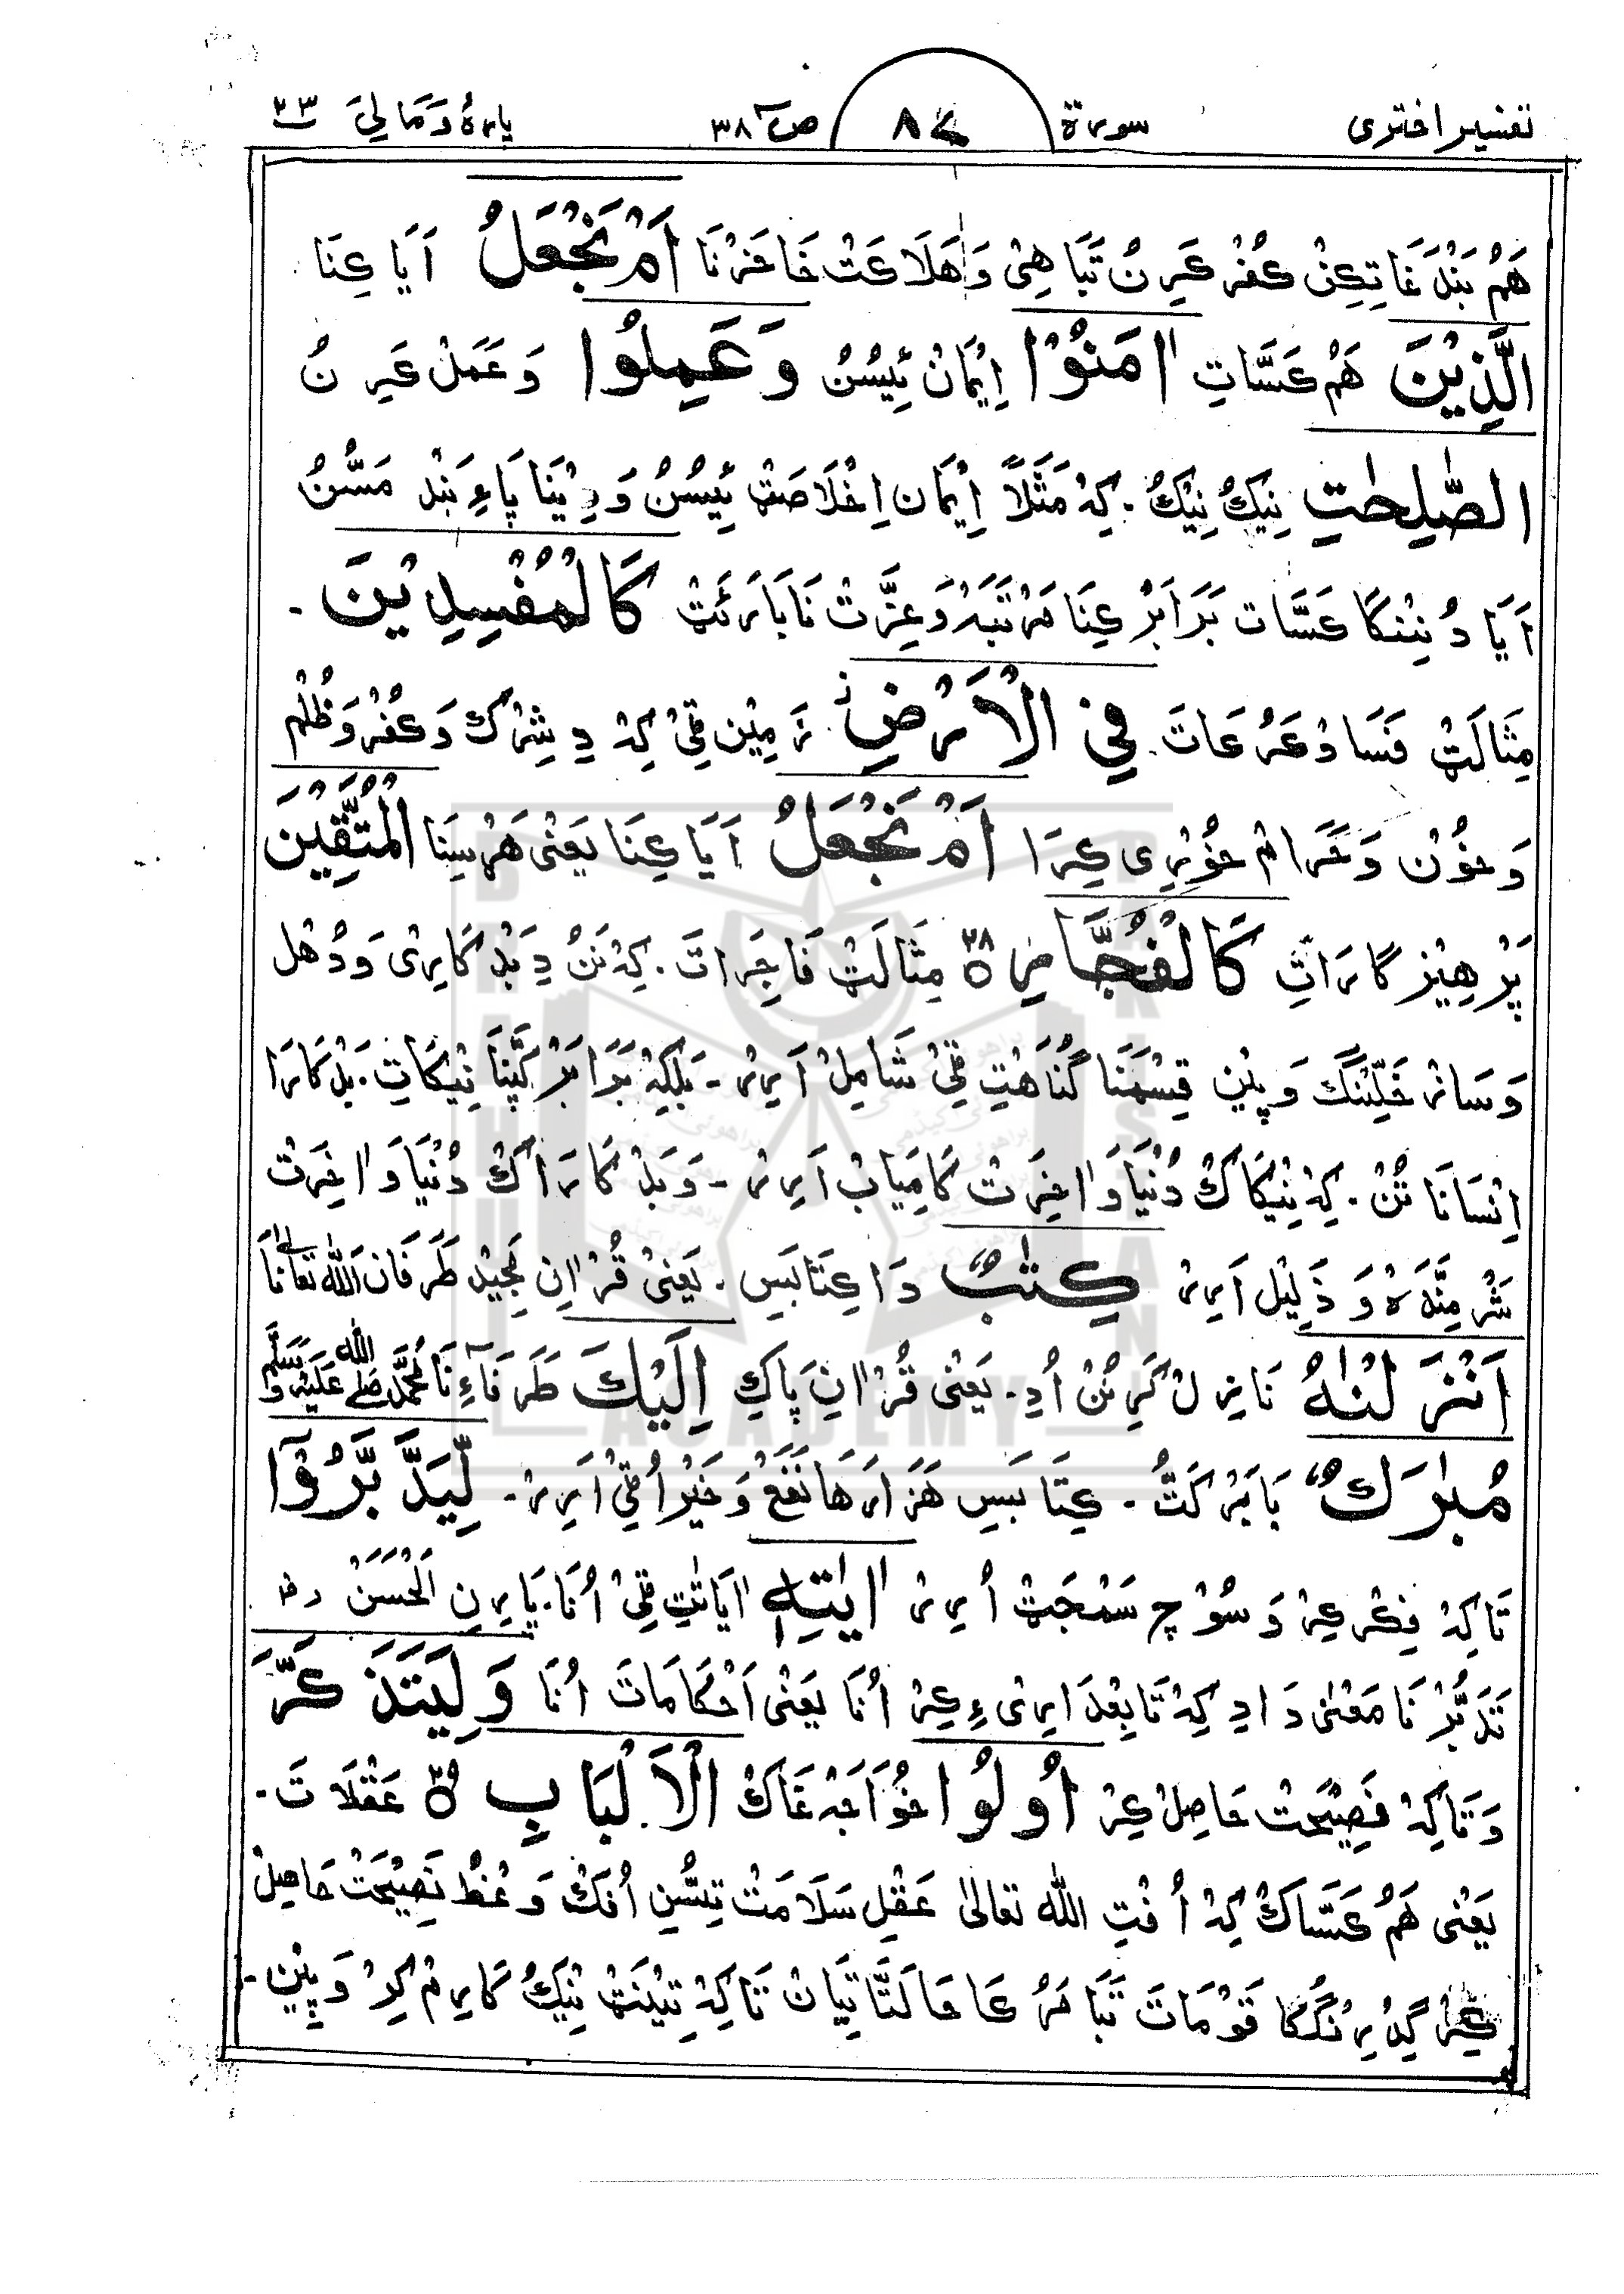 تفسیر اختری سورة ۸۷ ص ۳۸ پارهٔ وَمَالِیَ ۲۳
هَمُ بَنْدَغَاتِکِنْ کُفُرْ کَرِنُ تَبَاهِیْ وَ هَلَاکَتْ خَاخَرْنَا اَمْ نَجْعَلُ اَیَا کِنَا
الَّذِیْنَ هَمُ کَسَّاتِ اٰمَنُوْا اِیْمَانْ ہَیْسُنُ وَ عَمِلُوا وَ عَمَلْ کَرِ نُ
الصّٰلِحٰتِ نِیْکُ نِیْکُ . کِهْ مَثَلاً اِیْمَان اِخْلَاصَتْ ہَیْسُنُ وَ دِیْنَا پَاءِ بَنْدِ مَسُّنُ
اَیَا دُ نِنْگَا کَسَّات بَرَابَرْ کِنَا مَرْتَبَهْ وَ عِزَّتْ نَا بَارَئَتْ کَالْمُفْسِدِیْنَ .
مِثَالَتْ فَسَادْ کَرُکَاتَ فِی الْاَرْضِ زَمِیْن ٹِیْ کِهْ دِ شِرْک وَ کُفُرْ وَ ظُلْم
وَ خُوْن وَ حَرَامْ خُوْرِی کِرَا اَمْ نَجْعَلُ اَیَا کِنَا یَعْنِیْ هَرْسِنَا الْمُتَّقِیْنَ
پَرْهِیْز گَارَاتِ کَالْفُجَّارِ ۲۸ مِثَالَتْ فَاجِرَاتَ . کِهْ نَنُ دِ بَدْ کَارِیْ وَ دُهْل
وَ سَازْ خَلِّنْگ وَ پِیْن قِسْمَنَا گُنَاهْتِ ٹِیْ شَامِلْ اَرِیرْ - بَلْکِهْ بَرَابَرْ کَپِّنَا نِیْکَاتِ . بَدْ کَارَا
اِنْسَانَا تُنْ . کِهْ نِیْکَاکْ دُنْیَا وَ اٰخِرَت کَامِیَابْ اَرِیرْ - وَ بَدْ کَارَاکْ دُنْیَا وَ اٰخِرَتْ
شَرْمِنْدَهْ وَ ذَلِیْل اَرِیرْ کِتٰبٌ دَا کِتَابَسِ . یَعْنِیْ قُرْاٰنِ مَجِیْد طَرَفَان اَللّٰه تَعَالٰی نَا
اَنْزَلْنٰهُ نَازِل کَرِنُنْ اُدِ . یَعْنِیْ قُرْاٰنِ پَاکِ اِلَیْكَ طَرَفَآءِ نَا مُحَمَّد صَلَّی اللّٰه عَلَیْهِ وَسَلَّم
مُبٰرَكٌ بَابَرْکَتُ . کِتَابَسِ هَزَارْهَا نَفَعْ وَ خَیْر اُٹِیْ اَرِیرْ . لِیَدَّبَّرُوْٓا
تَاکِهْ فِکْر کِرْ وَ سُوْچ سَمْجَتْ اُرِیرْ اٰیٰتِهٖ اٰیَاتِ ٹِیْ اُنَا . پَارِیْن اَلْحَسَنْ رح
تَدَبُّرْ نَا مَعْنٰی دَادِ کِهْ تَابِعْدَارِیْ ءِ کِرْ اُنَا یَعْنِیْ اَحْکَامَاتَ اُنَا وَ لِیَتَذَكَّرَ
وَ تَاکِهْ نَصِیْحَتْ حَاصِلْ کِرْ اُولُوا خُوَاجَهْ غَاکْ الْاَلْبَابِ ۲۹ عَقْلَاتَ .
یَعْنِیْ هَمُ کَسَّاکْ کِهْ اُفْتِ اللّٰه تعالیٰ عَقْلِ سَلَامَتْ تِسُّنِ اُفَکْ وَعْظُ نَصِیْحَتْ حَاصِلْ
کِرْ گِدْرِنْگکَا قَوْمَاتَ تَبَاهَرُکَا حَالَتَّاتِیَان تَاکِهْ تِیْنَتْ نِیْکُ کَارِیمْ کِرْ وَ پِیْن .